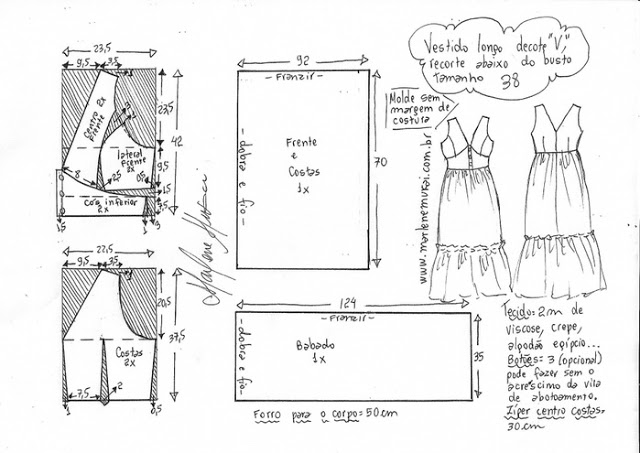 Vestido longo decote "V",
recorte abaixo do busto
Tamanho 38
Molde sem
margem de
costura
www.marlenemukai.com.br
23,5
9,5
3,5
1
centro 2x
frente
3
1
lateral
frente
2x
8
2,5
0,5
cós inferior
2x
1,5
1
3
23,5
42
9,5
1,5
7,5
22,5
9,5
3,5
1
20,5
37,5
Costas
2x
7,5
2
1
0,5
92
- Franzir -
Frente
e
Costas
1x
- dobra e fio -
70
124
- Franzir -
Babado
1x
- dobra e fio -
35
Forro para o corpo = 50 cm
Tecido = 2m de
viscose, crepe,
algodão egípcio...
Botões = 3 (opcional)
pode fazer sem o
acréscimo da vita
de abotoamento.
Zíper centro costas:
30 cm